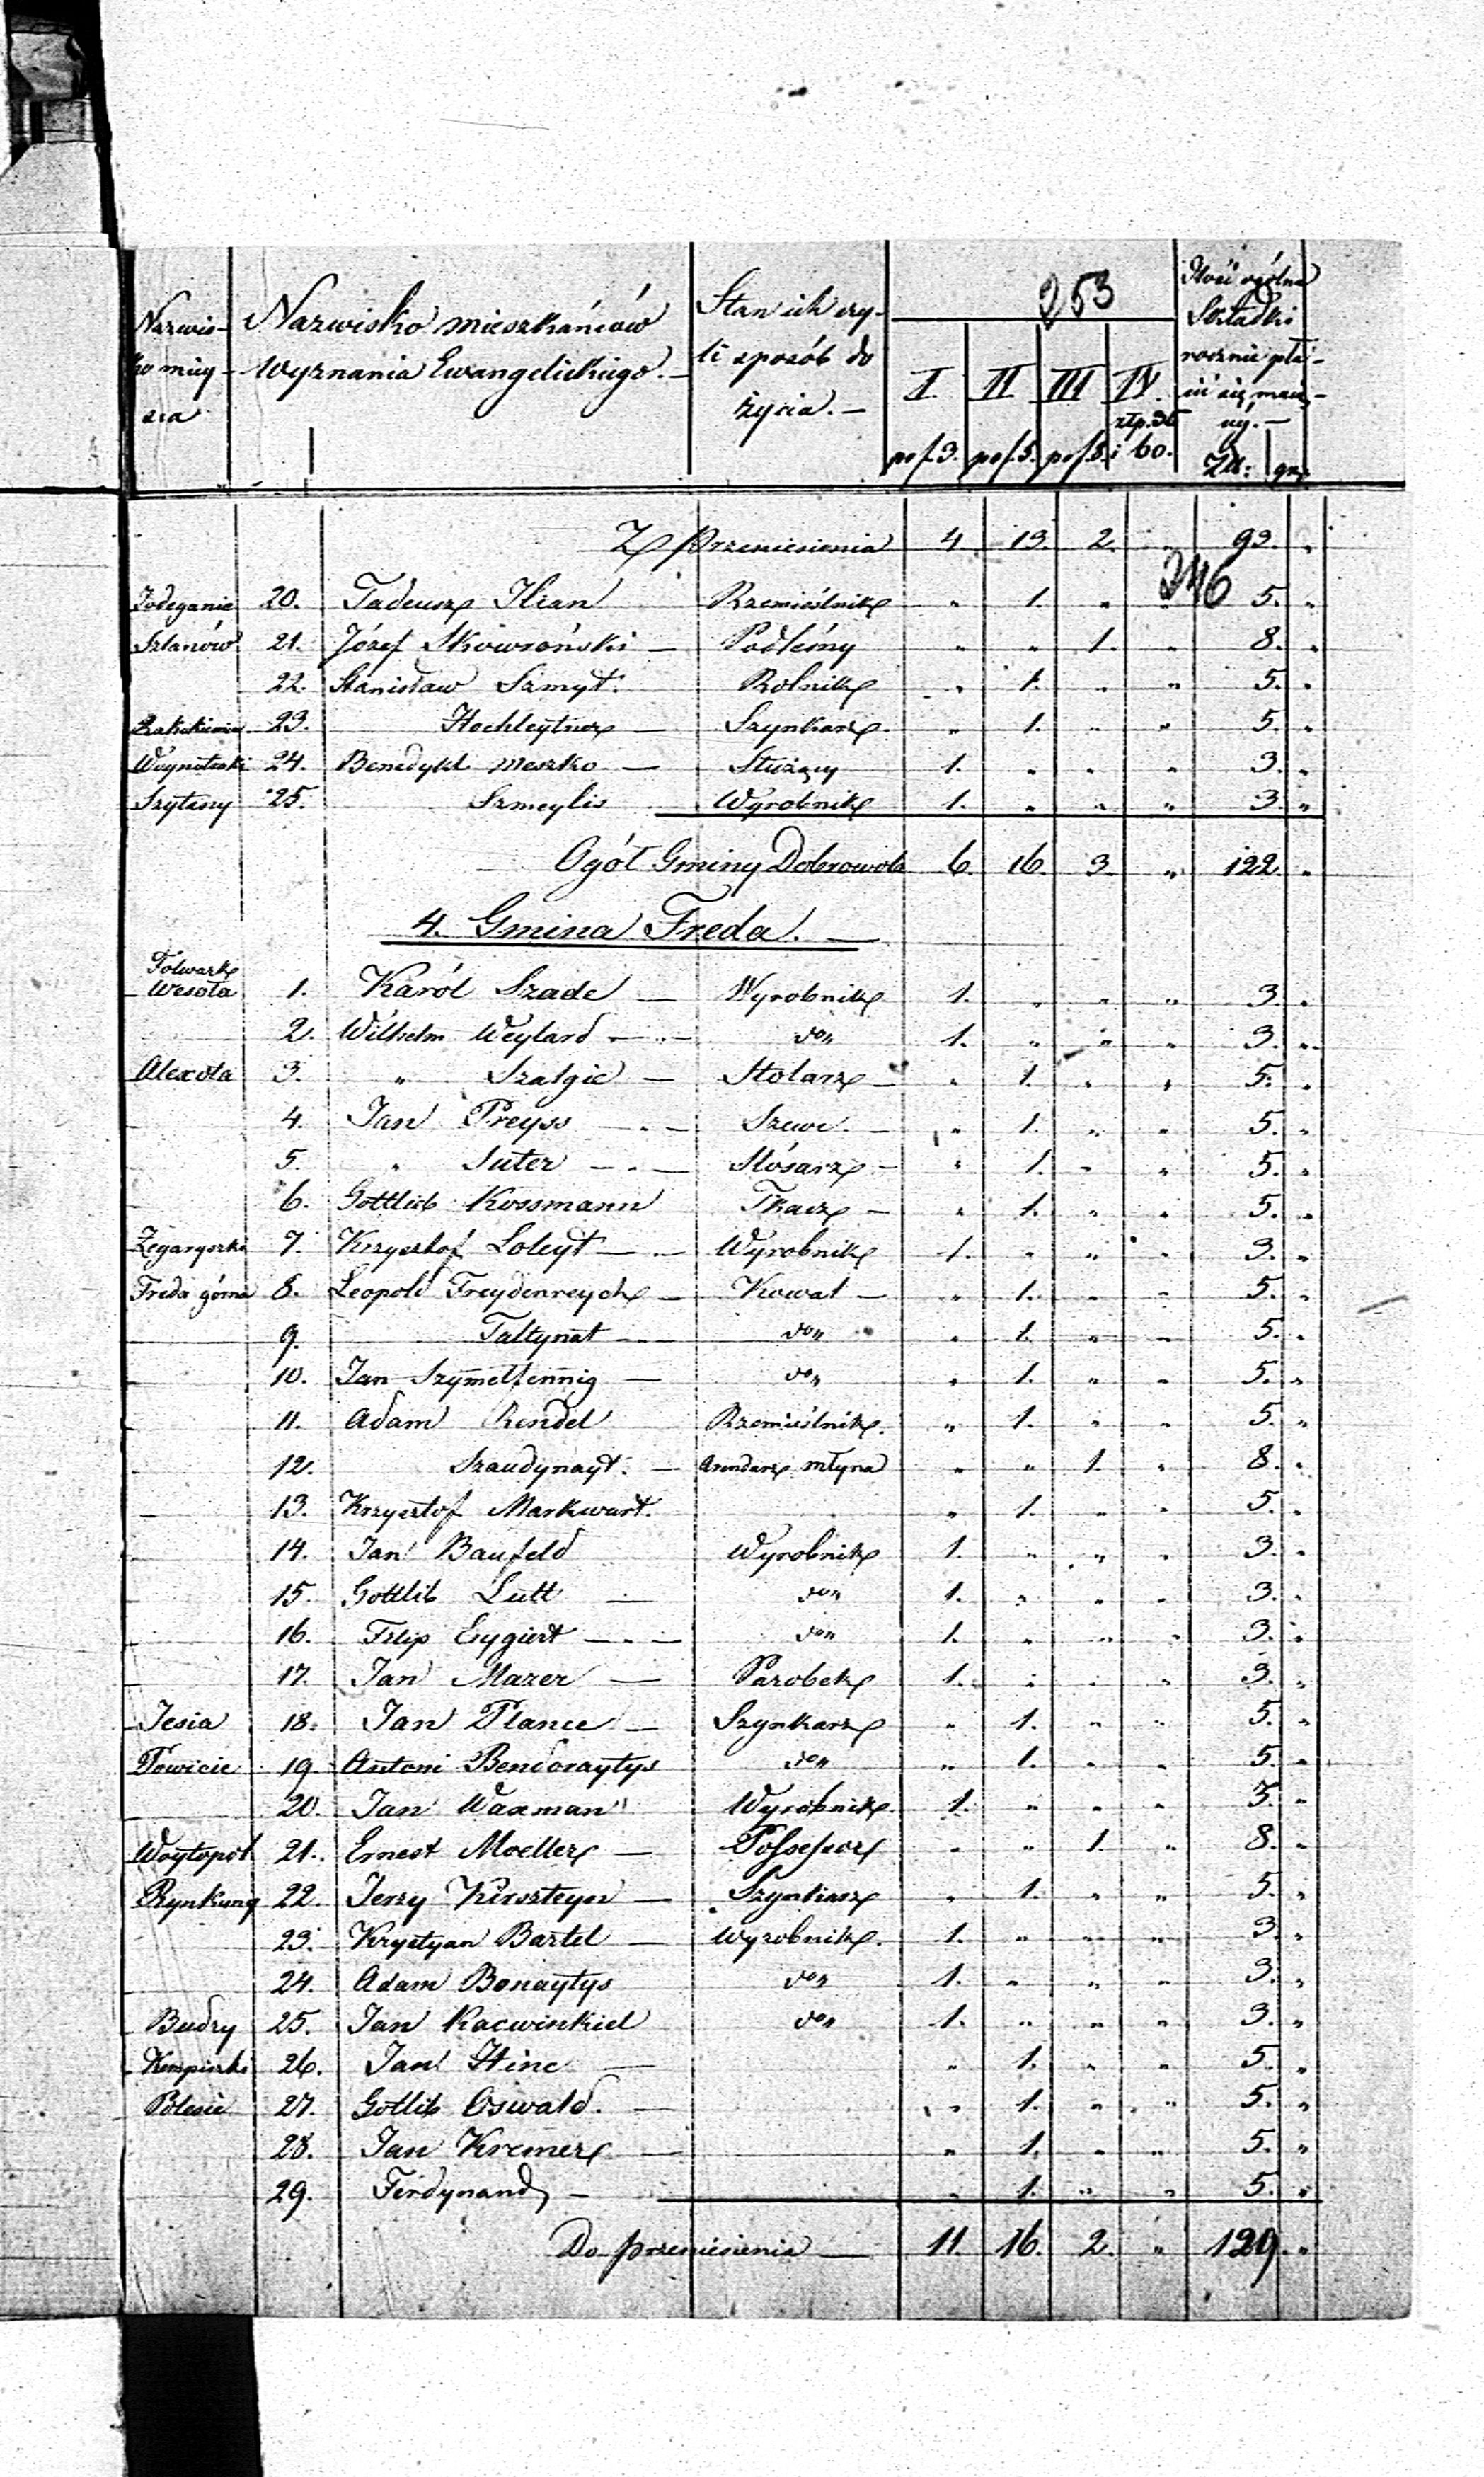 253
Nazwisko mieszkańców
wyznania Ewangelickiego.
Stan ich czy-
li sposób do
życia.
I. II III IV.
po f. 3. po f. 5. po f. 8. złp. 36 i 60.
Ilość ogólna
Składki
rocznie pła-
Zł: gr.
Z przeniesienia 4. 13. 2. " 93. "
246
Jodeganie 20. Tadeusz Ilran Rzemieślnik " 1. " " 5. "
Sztanów 21. Józef Skowroński Podleśny " " 1. " 8. "
22. Stanisław Szmyt. Rolnik " 1. " " 5. "
23. Hochleytner Szynkarz. " 1. " " 5. "
24. Benedykt Meszko Służący 1. " " " 3. "
Szytany 25. Szmeylis Wyrobnik 1. " " " 3. "
Ogół Gminy Dobrowola 6. 16. 3. " 122 "
4. Gmina Freda.
Folwark
Wesoła 1. Karól Szade Wyrobnik 1. " " " 3. "
2. Wilhelm Weylard do" 1. " " " 3. "
Alexota 3. " Szalgie Stolarz " 1. " " 5. "
4. Jan Preyss Szewc. " 1. " " 5. "
5. " Suter Slósarz " 1. " " 5. "
6. Gottlieb Kossmann Tkacz " 1. " " 5. "
Żegaryszki 7. Krzysztof Loleyt Wyrobnik 1. " " " 3. "
Freda górna 8. Leopold Freydenreych Kowal " 1. " " 5. "
9. Taltynat do" " 1. " " 5. "
10. Jan Szymelfennig do" " 1. " " 5. "
11. Adam Rendel Rzemieślnik. " 1. " " 5. "
12. Szaudynayt. Arendarz młyna " " 1. " 8. "
13. Krzysztof Markwart. " 1. " " 5. "
14. Jan Baufeld Wyrobnik 1. " " " 3. "
15. Gottlib Lutt do" 1. " " " 3. "
16. Filip Eygiert do" 1. " " " 3. "
17. Jan Mazer Parobek 1. " " " 3. "
Jesia 18. Jan Plance Szynkarz " 1. " " 5. "
Powicie 19. Antoni Bendoraytys do" " 1. " " 5. "
20. Jan Waxman Wyrobnik. 1. " " " 3. "
Woytopol 21. Ernest Moeller Possessor " " 1. " 8. "
Rynkung 22. Jerzy Kirszteyn Szynkarz " 1. " " 5. "
23. Krystyan Bartel Wyrobnik. 1. " " " 3. "
24. Adam Bonaytys do" 1. " " " 3. "
Budry 25. Jan Kacwinkiel do" 1. " " " 3. "
Kempiszki 26. Jan Hinc " 1. " " 5. "
Polesie 27. Gotlib Oswald. " 1. " " 5. "
28. Jan Kremer " 1. " " 5. "
29. Ferdynand " 1. " " 5. "
Do przeniesienia 11. 16. 2. " 129. "